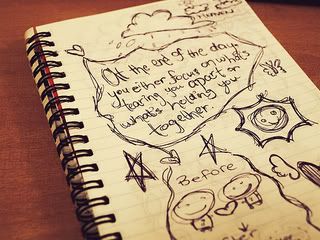 At the end of the day
you either focus on what's
tearing you apart or
what's holding you
together.
Before